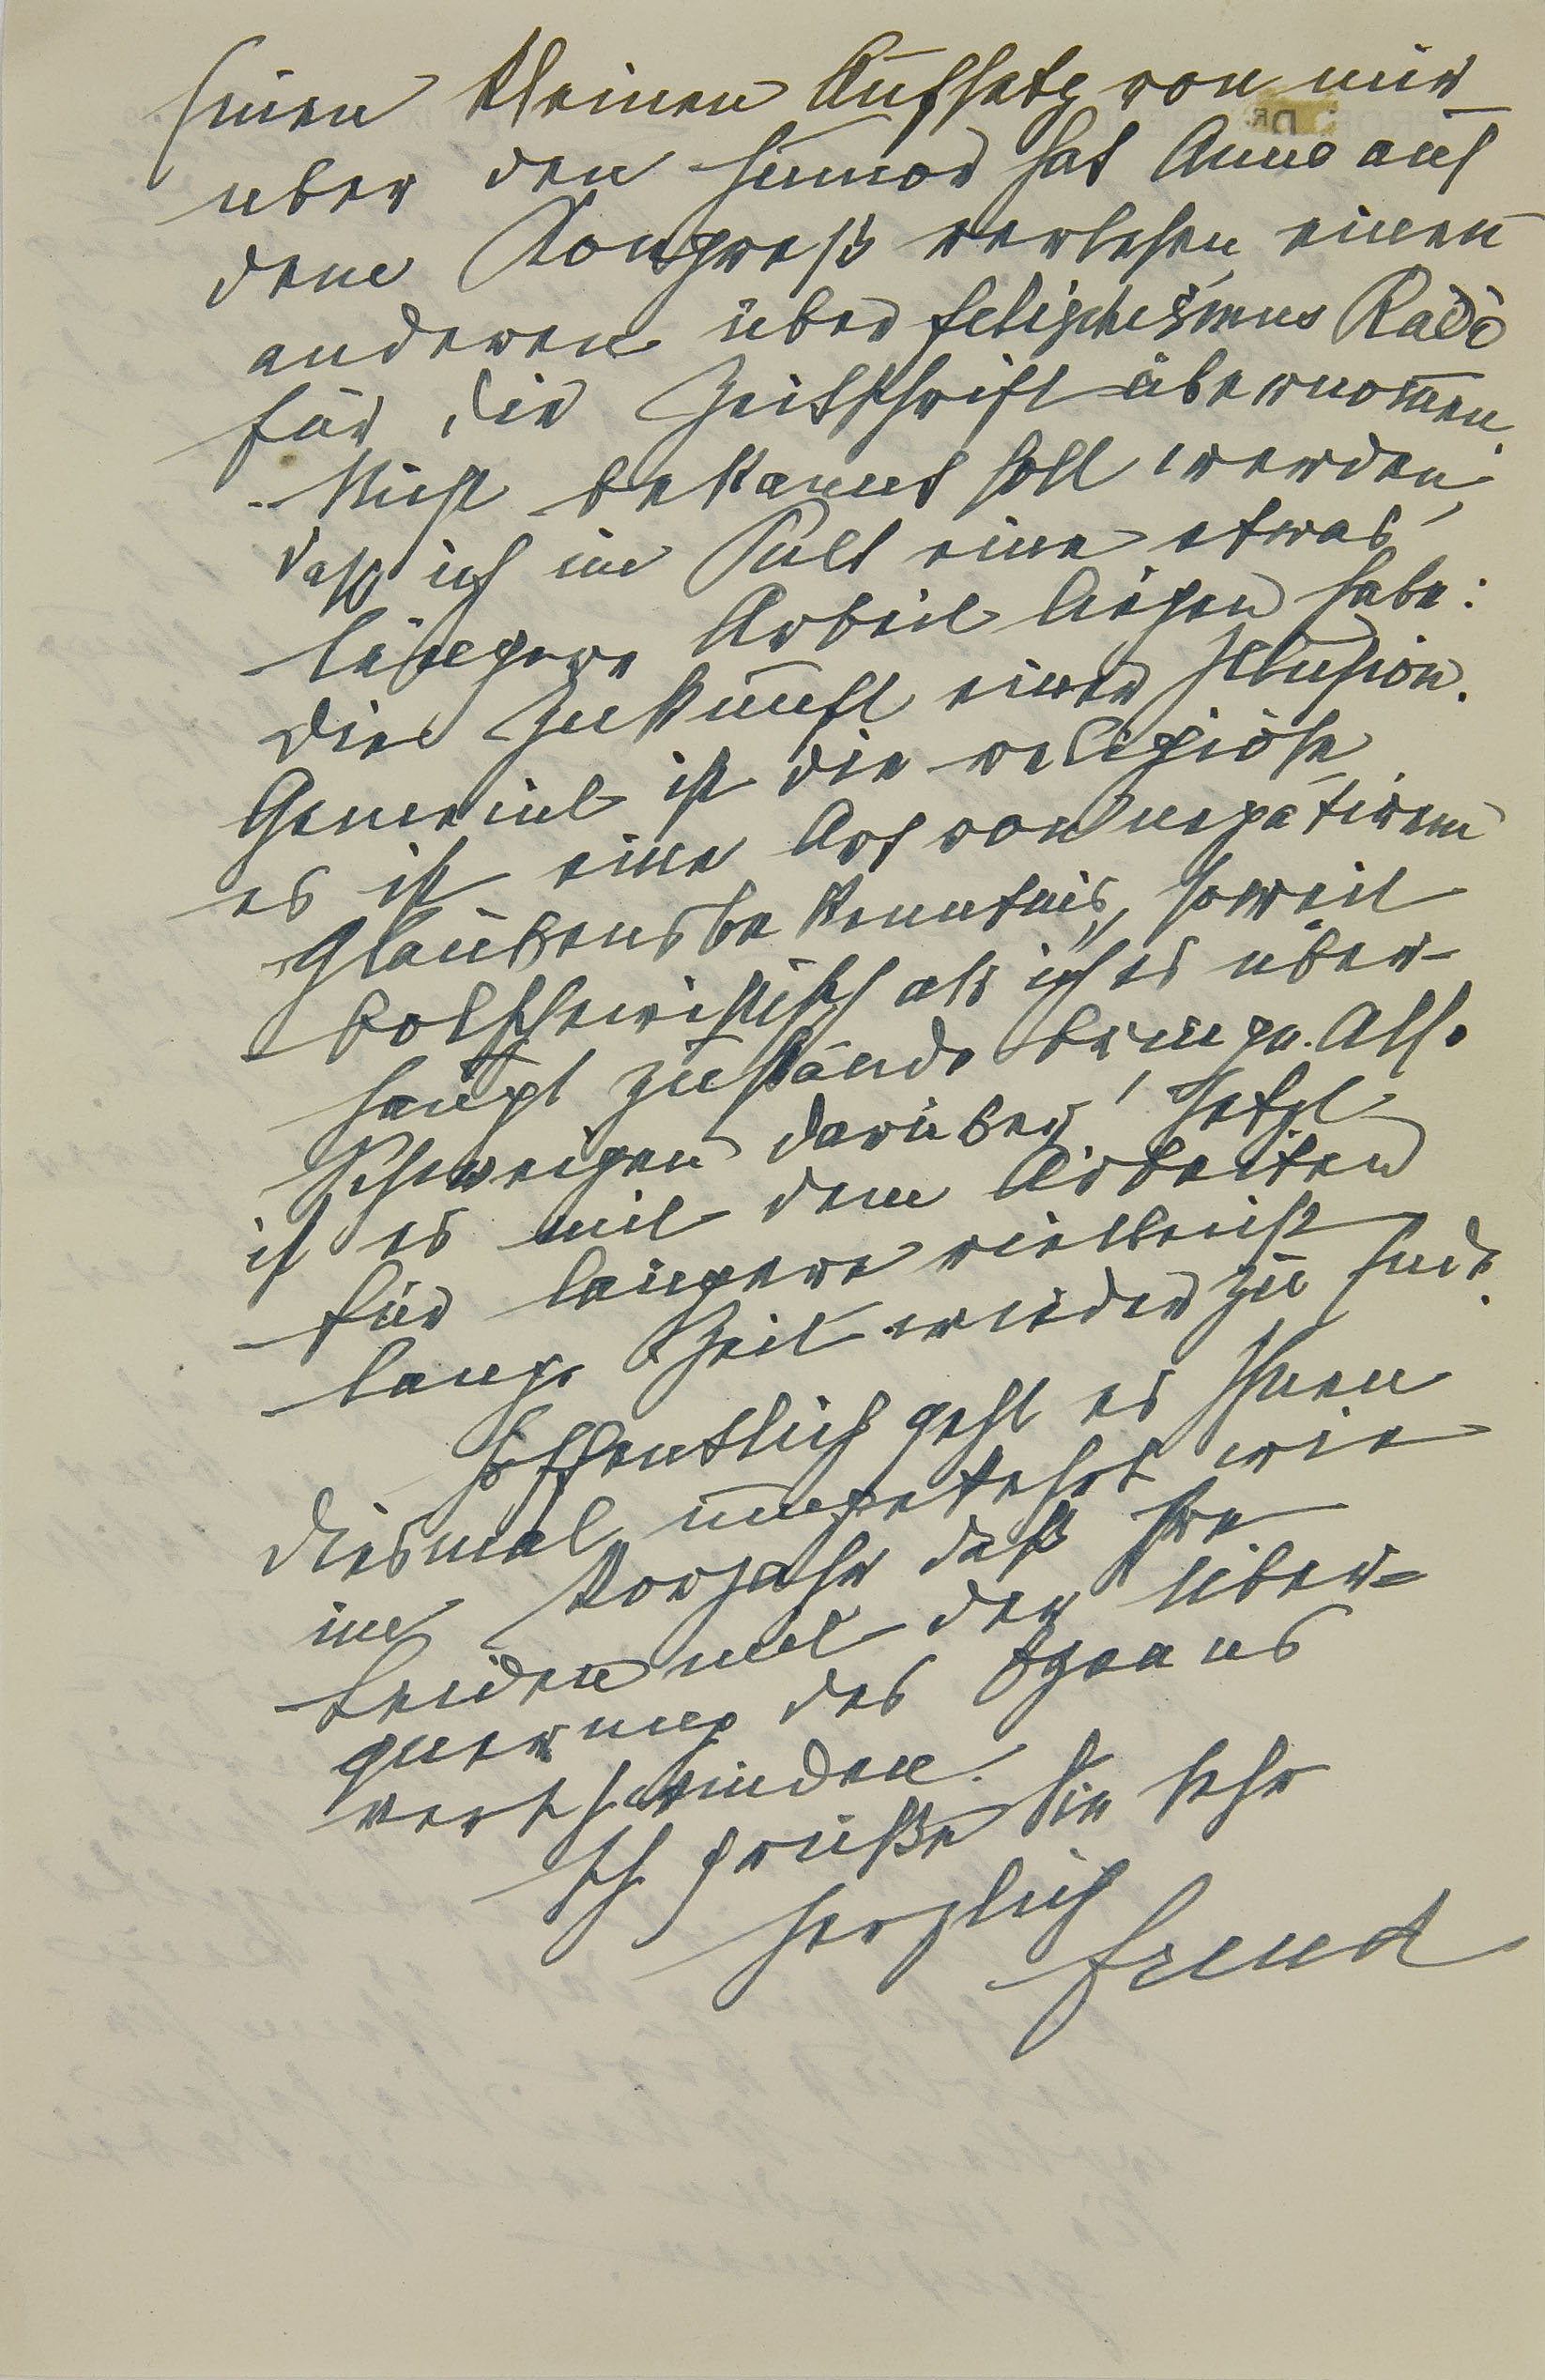 Einen kleinen Aufsatz von mir
über den Humor hat Anna auf
dem Kongreß verlesen, einen
anderen über Fetischismus Radó
für die Zeitschrift übernommen.
Nicht bekannt soll werden,
daß ich im Pult eine etwas
längere Arbeit liegen habe:
Die Zukunft einer Illusion.
Gemeint ist die religiöse,
es ist eine Art von negativem
Glaubensbekenntnis, soweit
bolschewistisch als ich es über-
haupt zustande bringe. Also
Schweigen darüber! Jetzt
ist es mit dem Arbeiten
für längere vielleicht
lange Zeit wieder zu Ende.
Hoffentlich geht es Ihnen
diesmal umgekehrt wie
im Vorjahr daß Ihre
Leiden mit der Über-
querung des Ozeans
verschwinden.
Ich grüße Sie sehr
herzlich
Freud